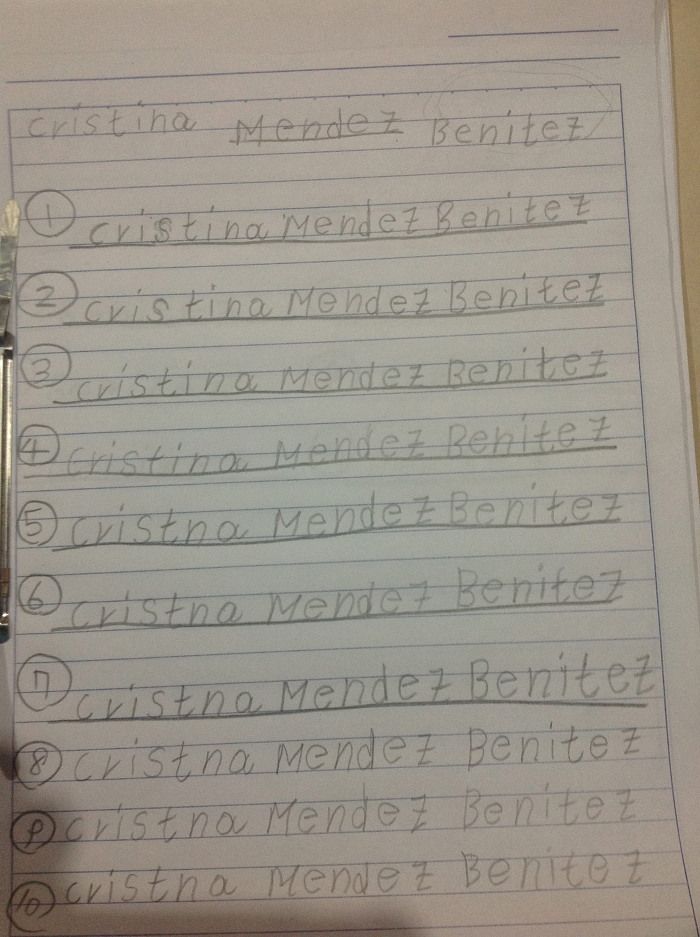 cristina Mendez Benitez
1 cristina Mendez Benitez
2 cristina Mendez Benitez
3 cristina Mendez Benitez
4 cristina Mendez Benitez
5 cristna Mendez Benitez
6 cristna Mendez Benitez
7 cristna Mendez Benitez
8 cristna Mendez Benitez
9 cristna Mendez Benitez
10 cristna Mendez Benitez